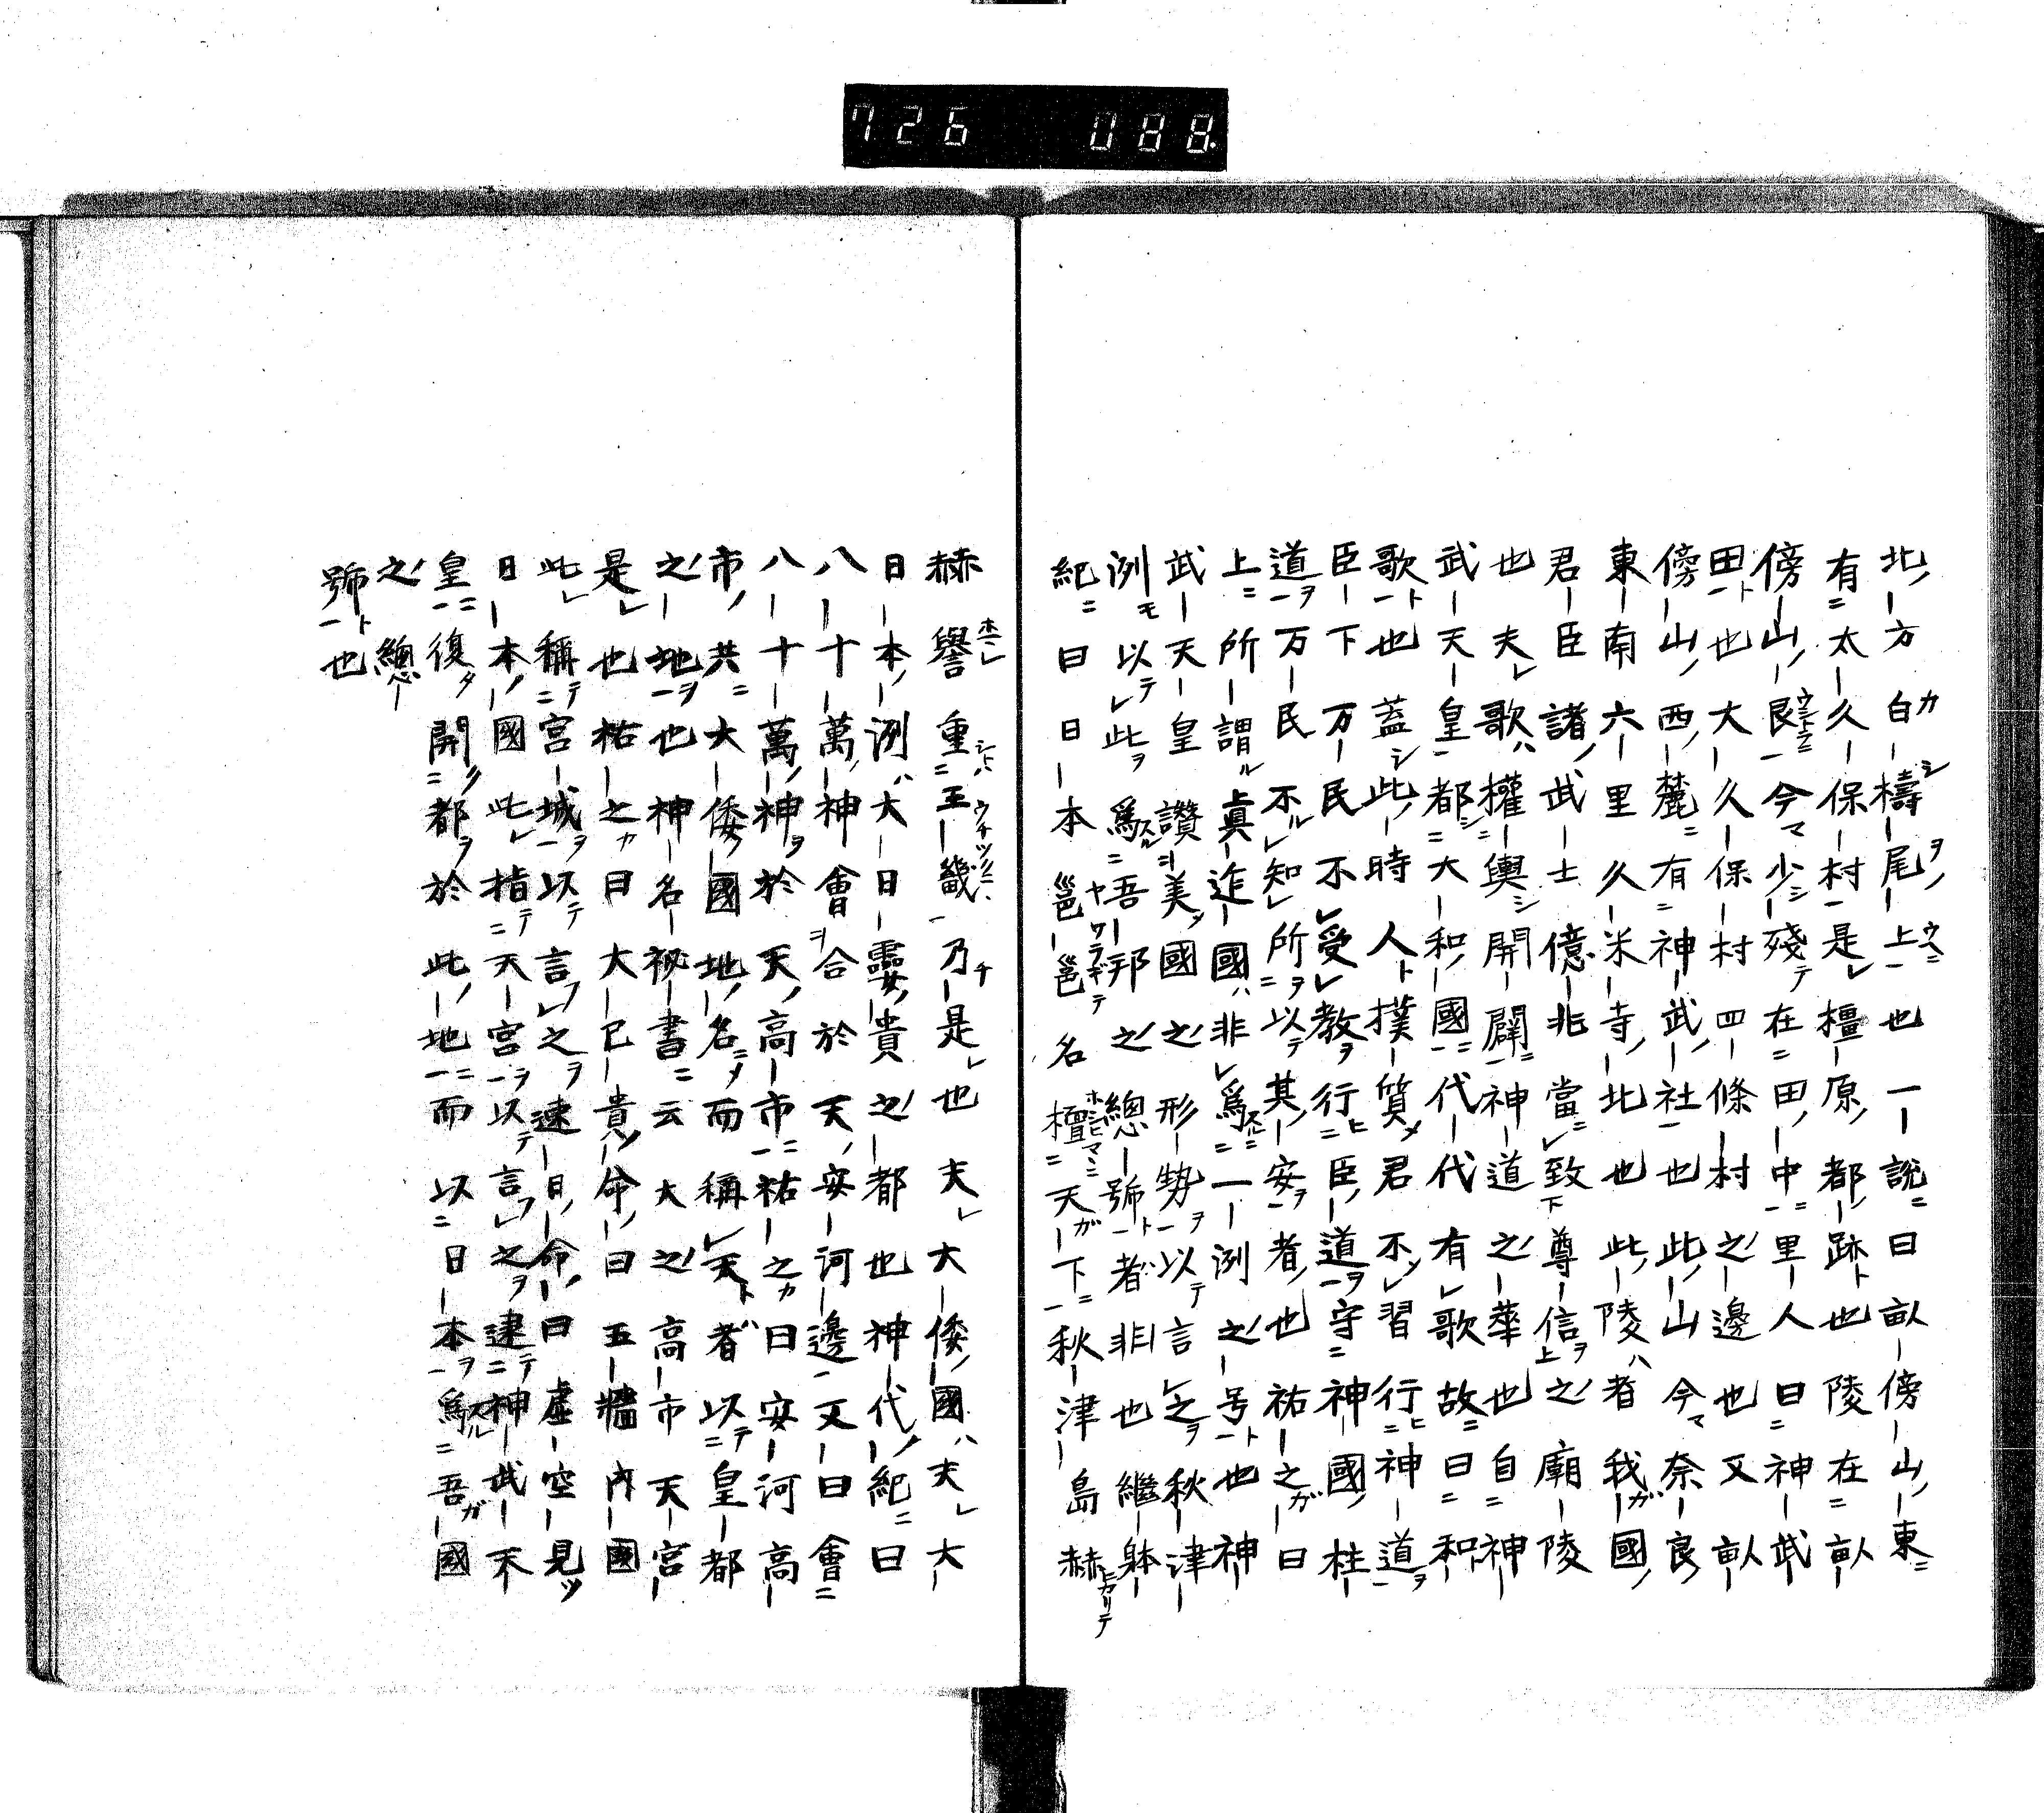 726 088.
北方白檮尾上也一說曰畝傍山東
有太久保村是橿原都跡也陵在畝
傍山艮今少殘在田中里人曰神武
田也大久保村四條村之邊也又畝
傍山西麓有神武社也此山今奈良
東南六里久米寺北也此陵者我國
君臣諸武士億兆當致尊信之廟陵
也夫歌權輿開闢神道之華也自神
武天皇都大和國代代有歌故曰和
歌也蓋此時人撲質君不習行神道
臣下万民不受教行臣道守神國柱
道万民不知所以其安者也祐之曰
上所謂眞迮國非爲一洌之号也神
武天皇讚美國之形勢以言之秋津
洌以此爲吾邦之總號者非也繼躰
紀曰日本邕邕名檀天下秋津島赫
赫譽重王畿乃是也夫大倭國夫大
日本洌大日孁貴之都也神代紀曰
八十萬神會合於天安河邊文曰會
八十萬神於天高市祐之曰安河高
市共大倭國地名而稱天者以皇都
之地也神名祕書云大之高市天宮
是也祐之曰大已貴命曰玉牆內國
此稱宮城以言之速日命曰虛空見
日本國此指天宮以言之逮神武天
皇復開都於此地而以日本爲吾國
之總
號也